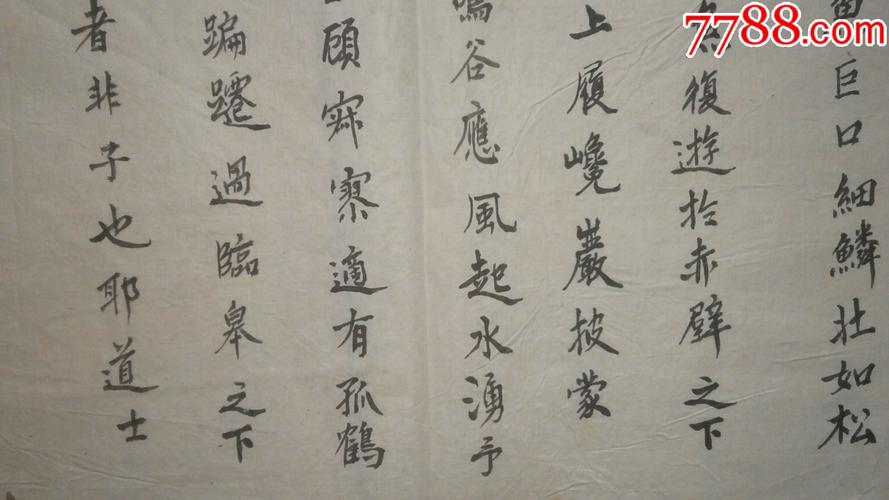 巨口細鱗壯如松
魚復遊於赤壁之下
上履巉巖披蒙
鳴谷應風起水湧予
顧寂寥適有孤鶴
蹁躚過臨皋之下
者非子也耶道士
7788.com